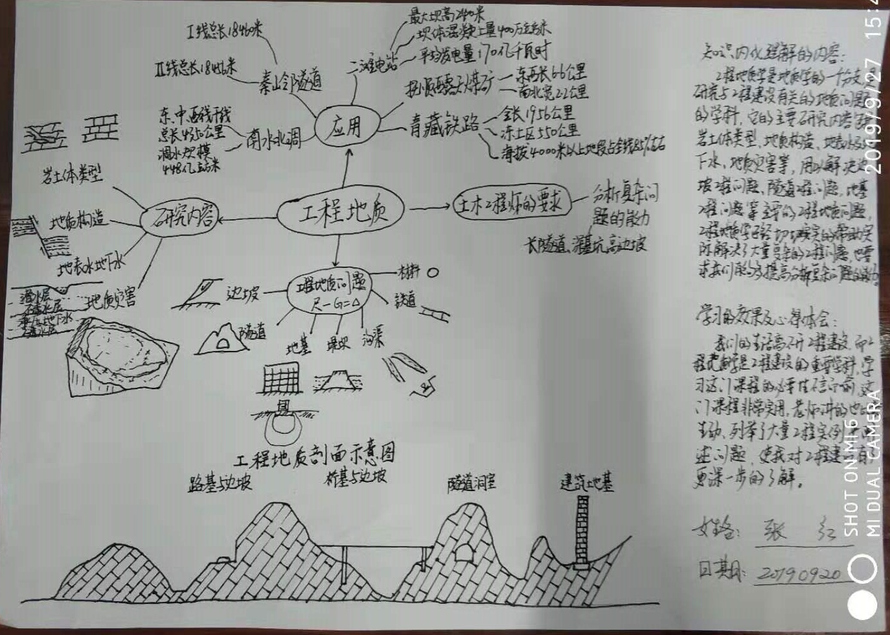 I线总长18460米
II线总长18456米
秦岭隧道
东、中、西线干线
总长4350公里
调水规模
448亿立方米
南水北调
应用
二滩电站
最大坝高240米
坝体混凝土量400万立方米
平均发电量170亿千瓦时
东西长66公里
南北宽22公里
青藏铁路
全长1956公里
冻土区550公里
海拔4000米以上地段占全线85%左右
工程地质
土木工程师的要求
分析复杂问
题的能力
长隧道、深基坑、高边坡
研究内容
岩土体类型
地质构造
地表水地下水
地质灾害
潜水层
工程地质问题
R-G=Δ
边坡
隧道
地基
坝
铁道
工程地质剖面示意图
路基与边坡
桥基与边坡
隧道洞室
建筑地基
知识内化理解的内容:
工程地质学是地质学的一个分支,是
研究与工程建设有关的地质问题
的学科,它的主要研究内容包括
岩土体类型,地质构造,地表水及地
下水,地质灾害等,用以解决边
坡工程问题,隧道工程问题,地基
工程问题等主要的工程地质问题,
学习的效果及心得体会:
我们的生活离不开工程建设,而工
程地质学是工程建设的重要学科,学
习这门课程的必要性不言而喻,这
门课程非常实用,老师讲的也
生动,列举了大量工程实例
述问题,使我对工程建设有
更深一步的了解。
姓名: 张红
日期: 20190920
2019/9/27 15:4
SHOT ON MI 6
MI DUAL CAMERA